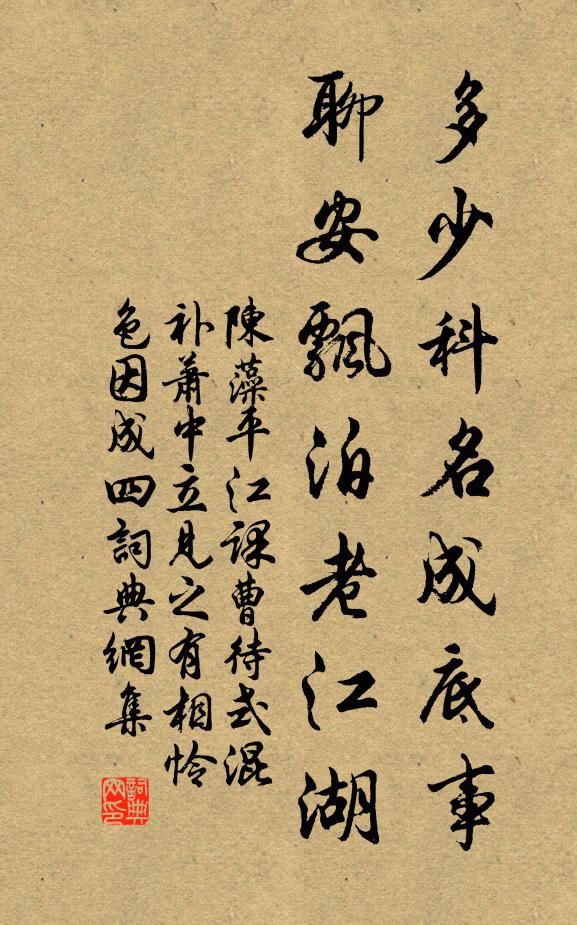 多少科名成底事
聊安飄泊老江湖
陳藻平江課曹待弍混
补蕭中立見之有相怜
色因成四詞典網集
詞典
网印